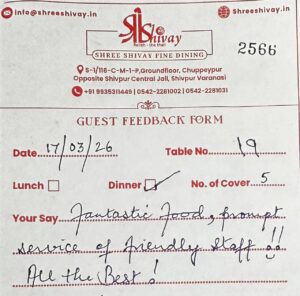 info@shreeshivay.in
Shreeshivay.in
Shivay
SHREE SHIVAY FINE DINING
2566
S-1/116-C-M-1-P,Groundfloor, Chuppeypur
Opposite Shivpur Central Jail, Shivpur Varanasi
+91 9935311449 | 0542-2281002 | 0542-2281031
GUEST FEEDBACK FORM
Date 17/03/26 Table No. 19
Lunch Dinner No. of Cover 5
Your Say Fantastic Food, prompt
service of friendly staff !!
All the Best !